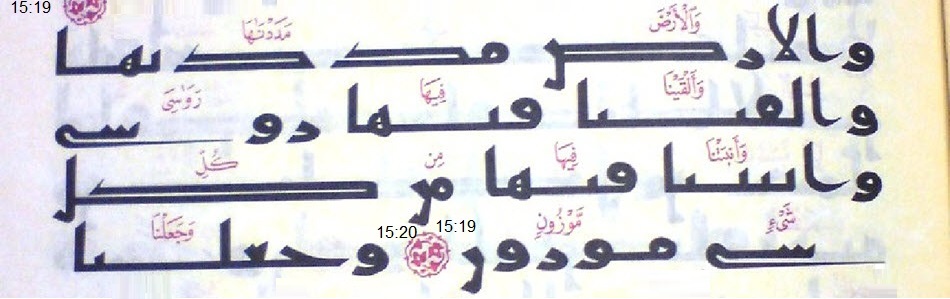 15:19
وَٱلْأَرْضَ مَدَدْنَٰهَا
والارض مددنها
وَأَلْقَيْنَا فِيهَا رَوَٰسِىَ
والقينا فيها روسى
وَأَنۢبَتْنَا فِيهَا مِن كُلِّ
وانبتنا فيها من كل
شَىْءٍ مَّوْزُونٍ 15:19 15:20 وَجَعَلْنَا
شى موزون وجعلنا